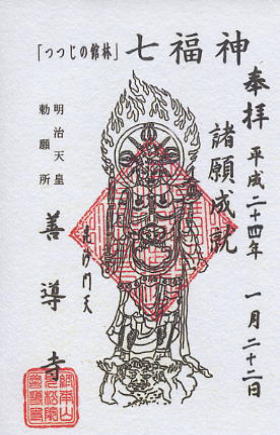 「つつじの館林」七福神
奉拝 平成二十四年 一月二十二日
諸願成就
毘沙門天
明治天皇
勅願所
善導寺